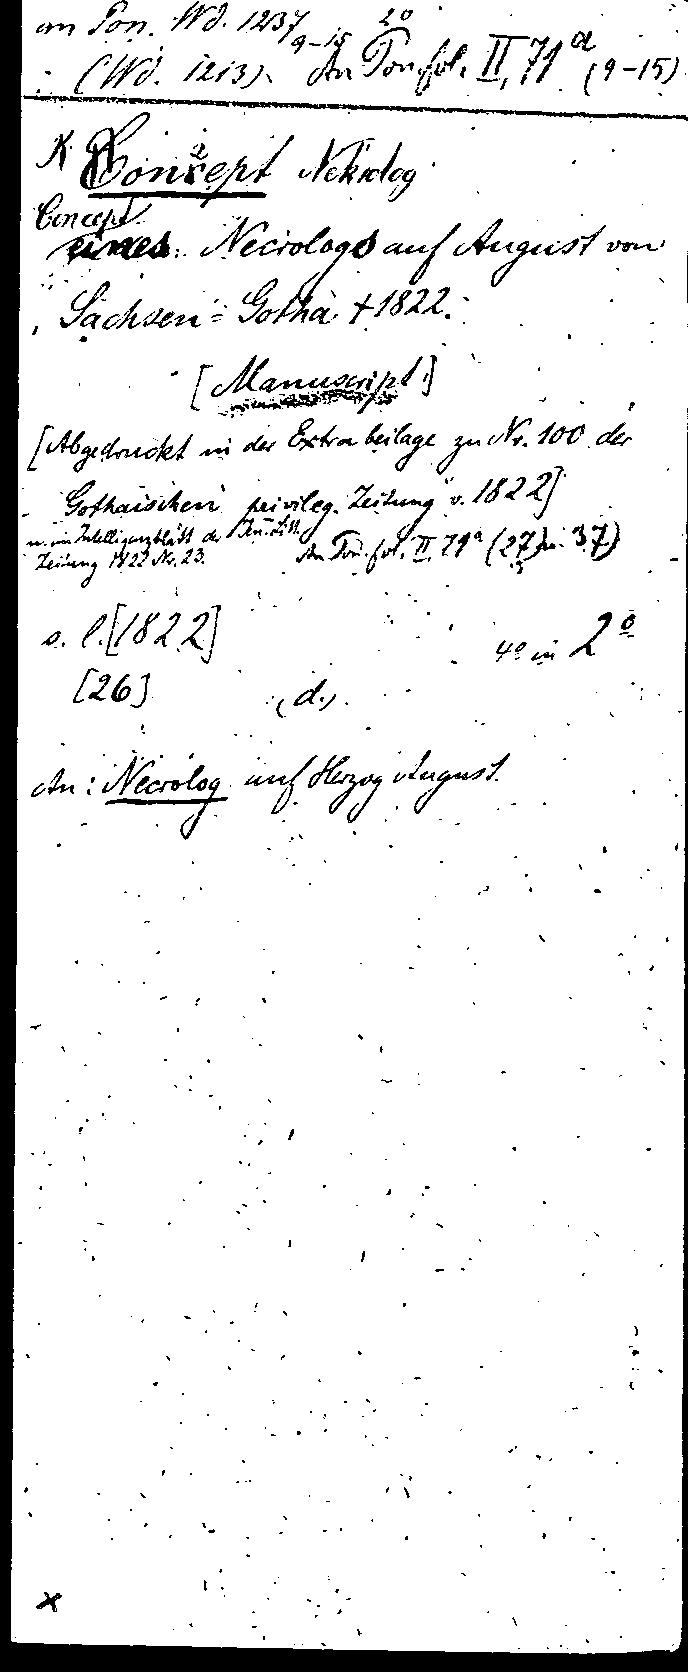 an Pon. Wd. 1237
9-15 20
(Wd. 1213). An Pon. fol. II, 71a (9-15)
K Concept Nekrolog
Concept
eines Necrologs auf August von
Sachsen-Gotha † 1822.
[Manuscript]
[Abgedruckt in der Extrabeilage zu Nr. 100 der
Gothaischen privileg. Zeitung v. 1822]
u. im Intelligenzblatt der Jen. Litt.
Zeitung 1822 Nr. 23. An Pon. fol. II, 71a (27) u. 37)
s. l. [1822] 4º in 2º
[26] (d.)
An: Necrolog auf Herzog August.
x